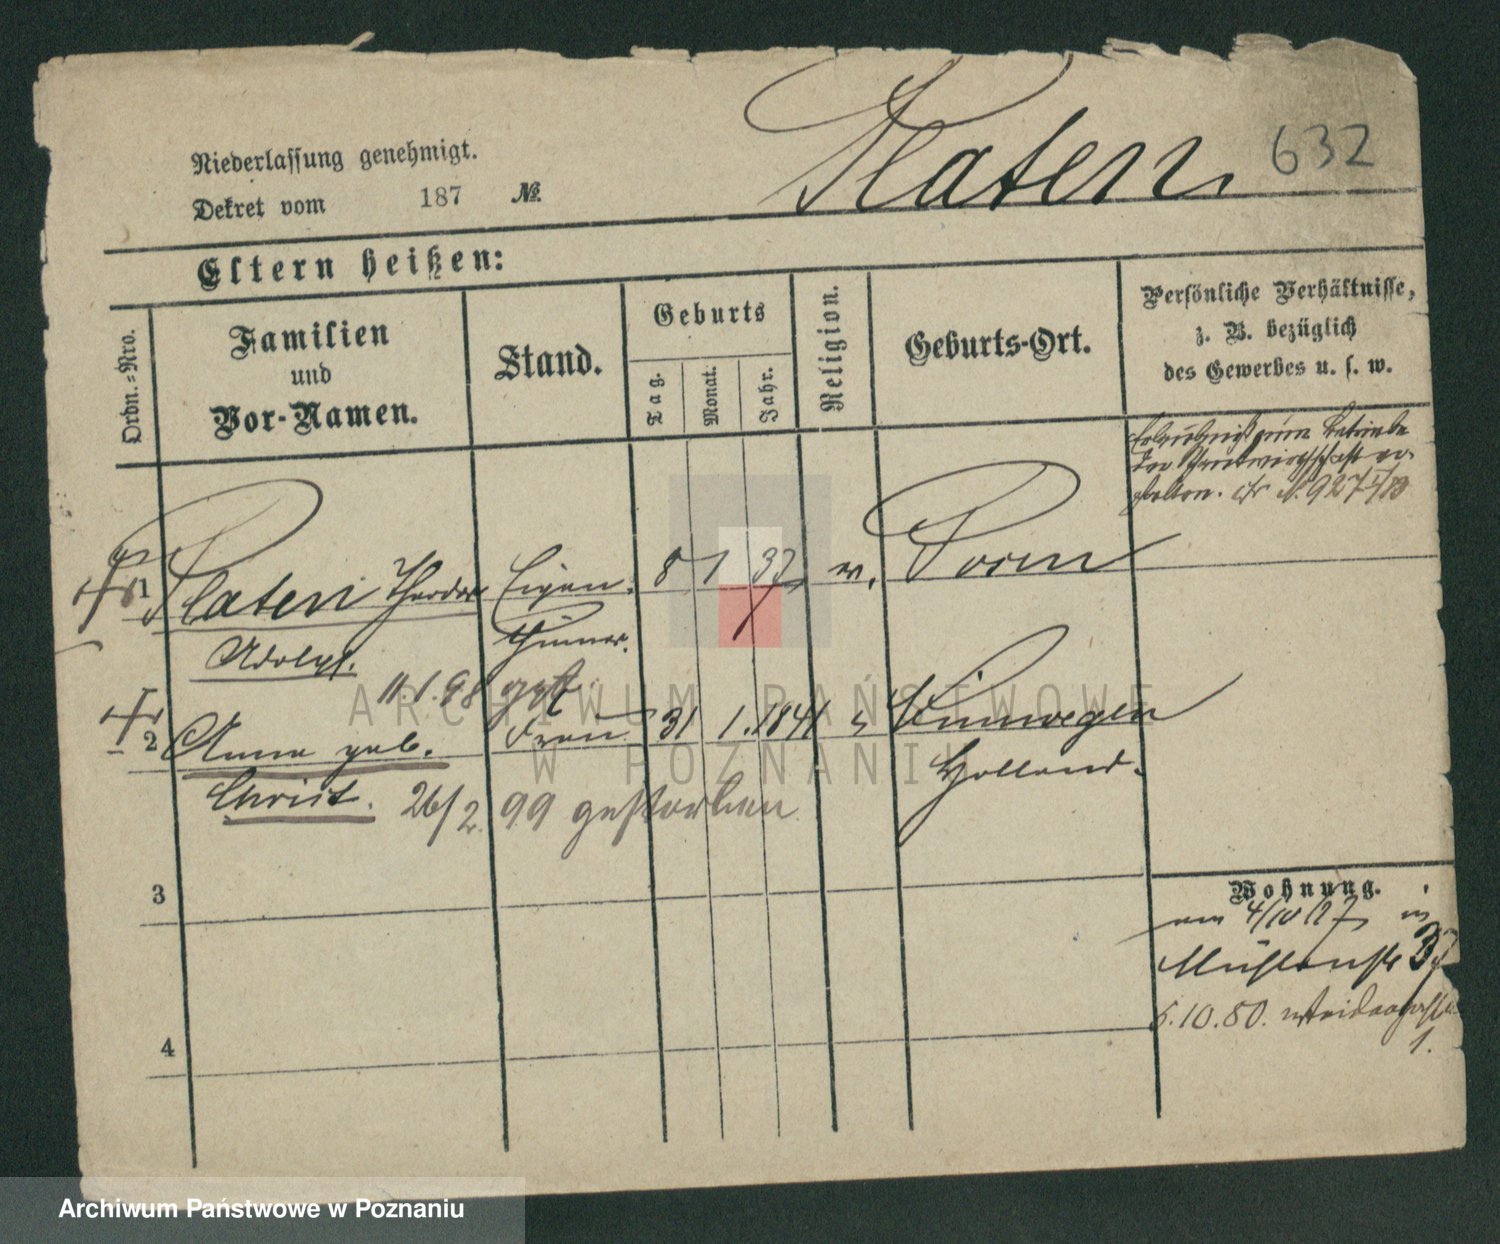 Platen
632
Niederlassung genehmigt.
Dekret vom 187 №
Eltern heißen:
Ordn.=Nro.
Familien
und
Vor-Namen.
Stand.
Geburts
Tag.
Monat.
Jahr.
Religion.
Geburts-Ort.
Persönliche Verhältnisse,
z. B. bezüglich
des Gewerbes u. s. w.
Erlaubniß zum Betriebe
der Schankwirthschaft er-
halten. cfr N. 927
1 Platen Theodor Eigen- 8 1 37 ev. Posen
Adolph. thümer.
11.1.98 gest.
2 Anna geb. Frau 31 1. 1841 Nimwegen
Christ. Holland.
26/2. 99 gestorben
3
4
Wohnung.
am 4/10 77 in
Mühlenstr 37
5.10.80.
1.
ARCHIWUM PAŃSTWOWE
W POZNANIU
Archiwum Państwowe w Poznaniu